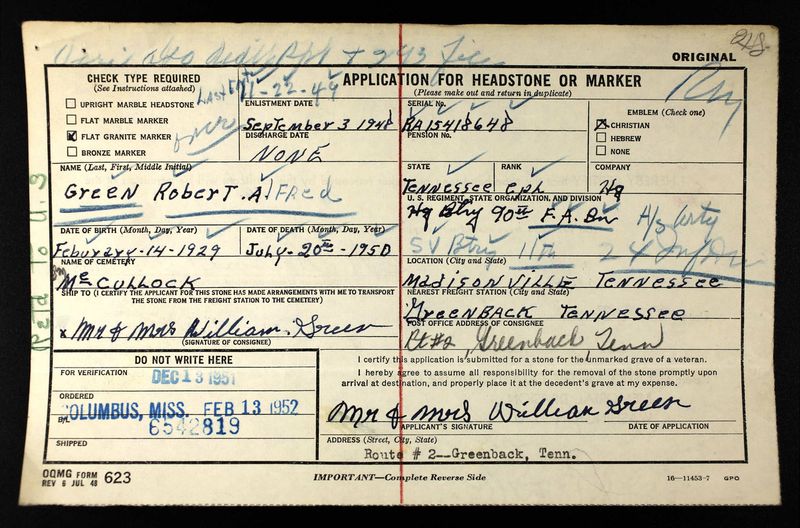 248
ORIGINAL
CHECK TYPE REQUIRED
(See Instructions attached)
UPRIGHT MARBLE HEADSTONE
FLAT MARBLE MARKER
FLAT GRANITE MARKER
BRONZE MARKER
11-22-49
APPLICATION FOR HEADSTONE OR MARKER
(Please make out and return in duplicate)
ENLISTMENT DATE
September 3 1948
DISCHARGE DATE
NONE
SERIAL No.
RA15418648
PENSION No.
EMBLEM (Check one)
CHRISTIAN
HEBREW
NONE
NAME (Last, First, Middle Initial)
Green Robert. Alfred
STATE
Tennessee
RANK
cpl
COMPANY
Hq
U. S. REGIMENT, STATE ORGANIZATION, AND DIVISION
Hq Btry 90th F.A. Bn
SV Btry 11th
24 Inf Div
DATE OF BIRTH (Month, Day, Year)
Feburary-14-1929
DATE OF DEATH (Month, Day, Year)
July-20th-1950
NAME OF CEMETERY
McCullock
LOCATION (City and State)
Madisonville Tennessee
SHIP TO (I CERTIFY THE APPLICANT FOR THIS STONE HAS MADE ARRANGEMENTS WITH ME TO TRANSPORT THE STONE FROM THE FREIGHT STATION TO THE CEMETERY)
NEAREST FREIGHT STATION (City and State)
Greenback Tennessee
x Mr & Mrs William. Green
(SIGNATURE OF CONSIGNEE)
POST OFFICE ADDRESS OF CONSIGNEE
Rt #2, Greenback Tenn
DO NOT WRITE HERE
FOR VERIFICATION
DEC 13 1951
ORDERED
COLUMBUS, MISS. FEB 13 1952
B/L
6542819
SHIPPED
I certify this application is submitted for a stone for the unmarked grave of a veteran.
I hereby agree to assume all responsibility for the removal of the stone promptly upon
arrival at destination, and properly place it at the decedent's grave at my expense.
Mr & Mrs William Green
APPLICANT'S SIGNATURE
DATE OF APPLICATION
ADDRESS (Street, City, State)
Route # 2--Greenback, Tenn.
OQMG FORM
REV 6 JUL 48 623
IMPORTANT—Complete Reverse Side
16—11453-7 GPO